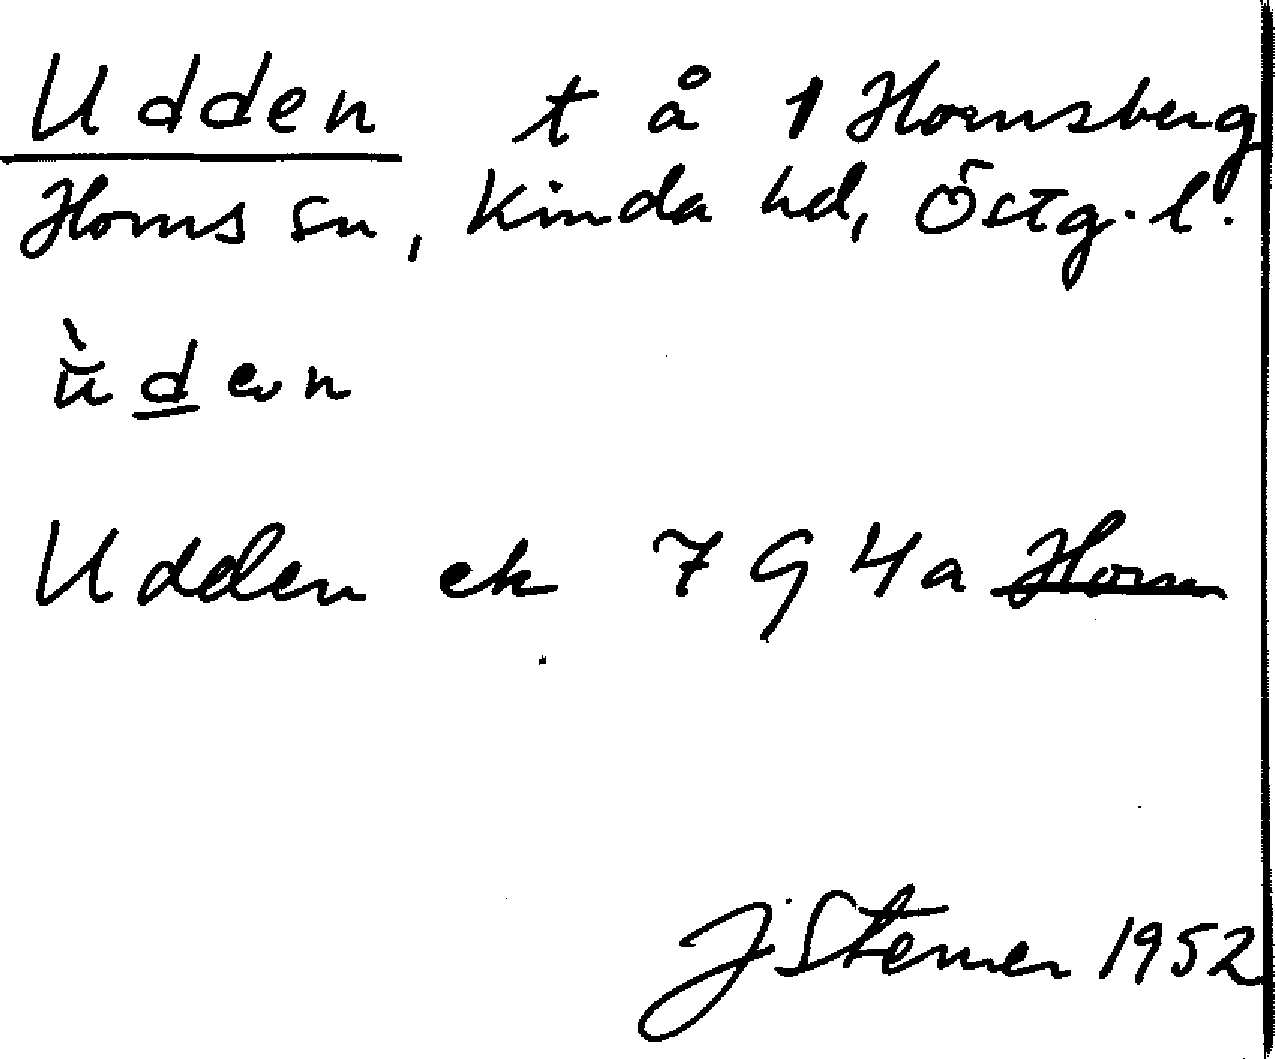 Udden t å 1 Hornsberg
Horns sn, Kinda hd, Östg. l.
ùden
Udden ek 7 9 4a Horn
J Sterner 1952